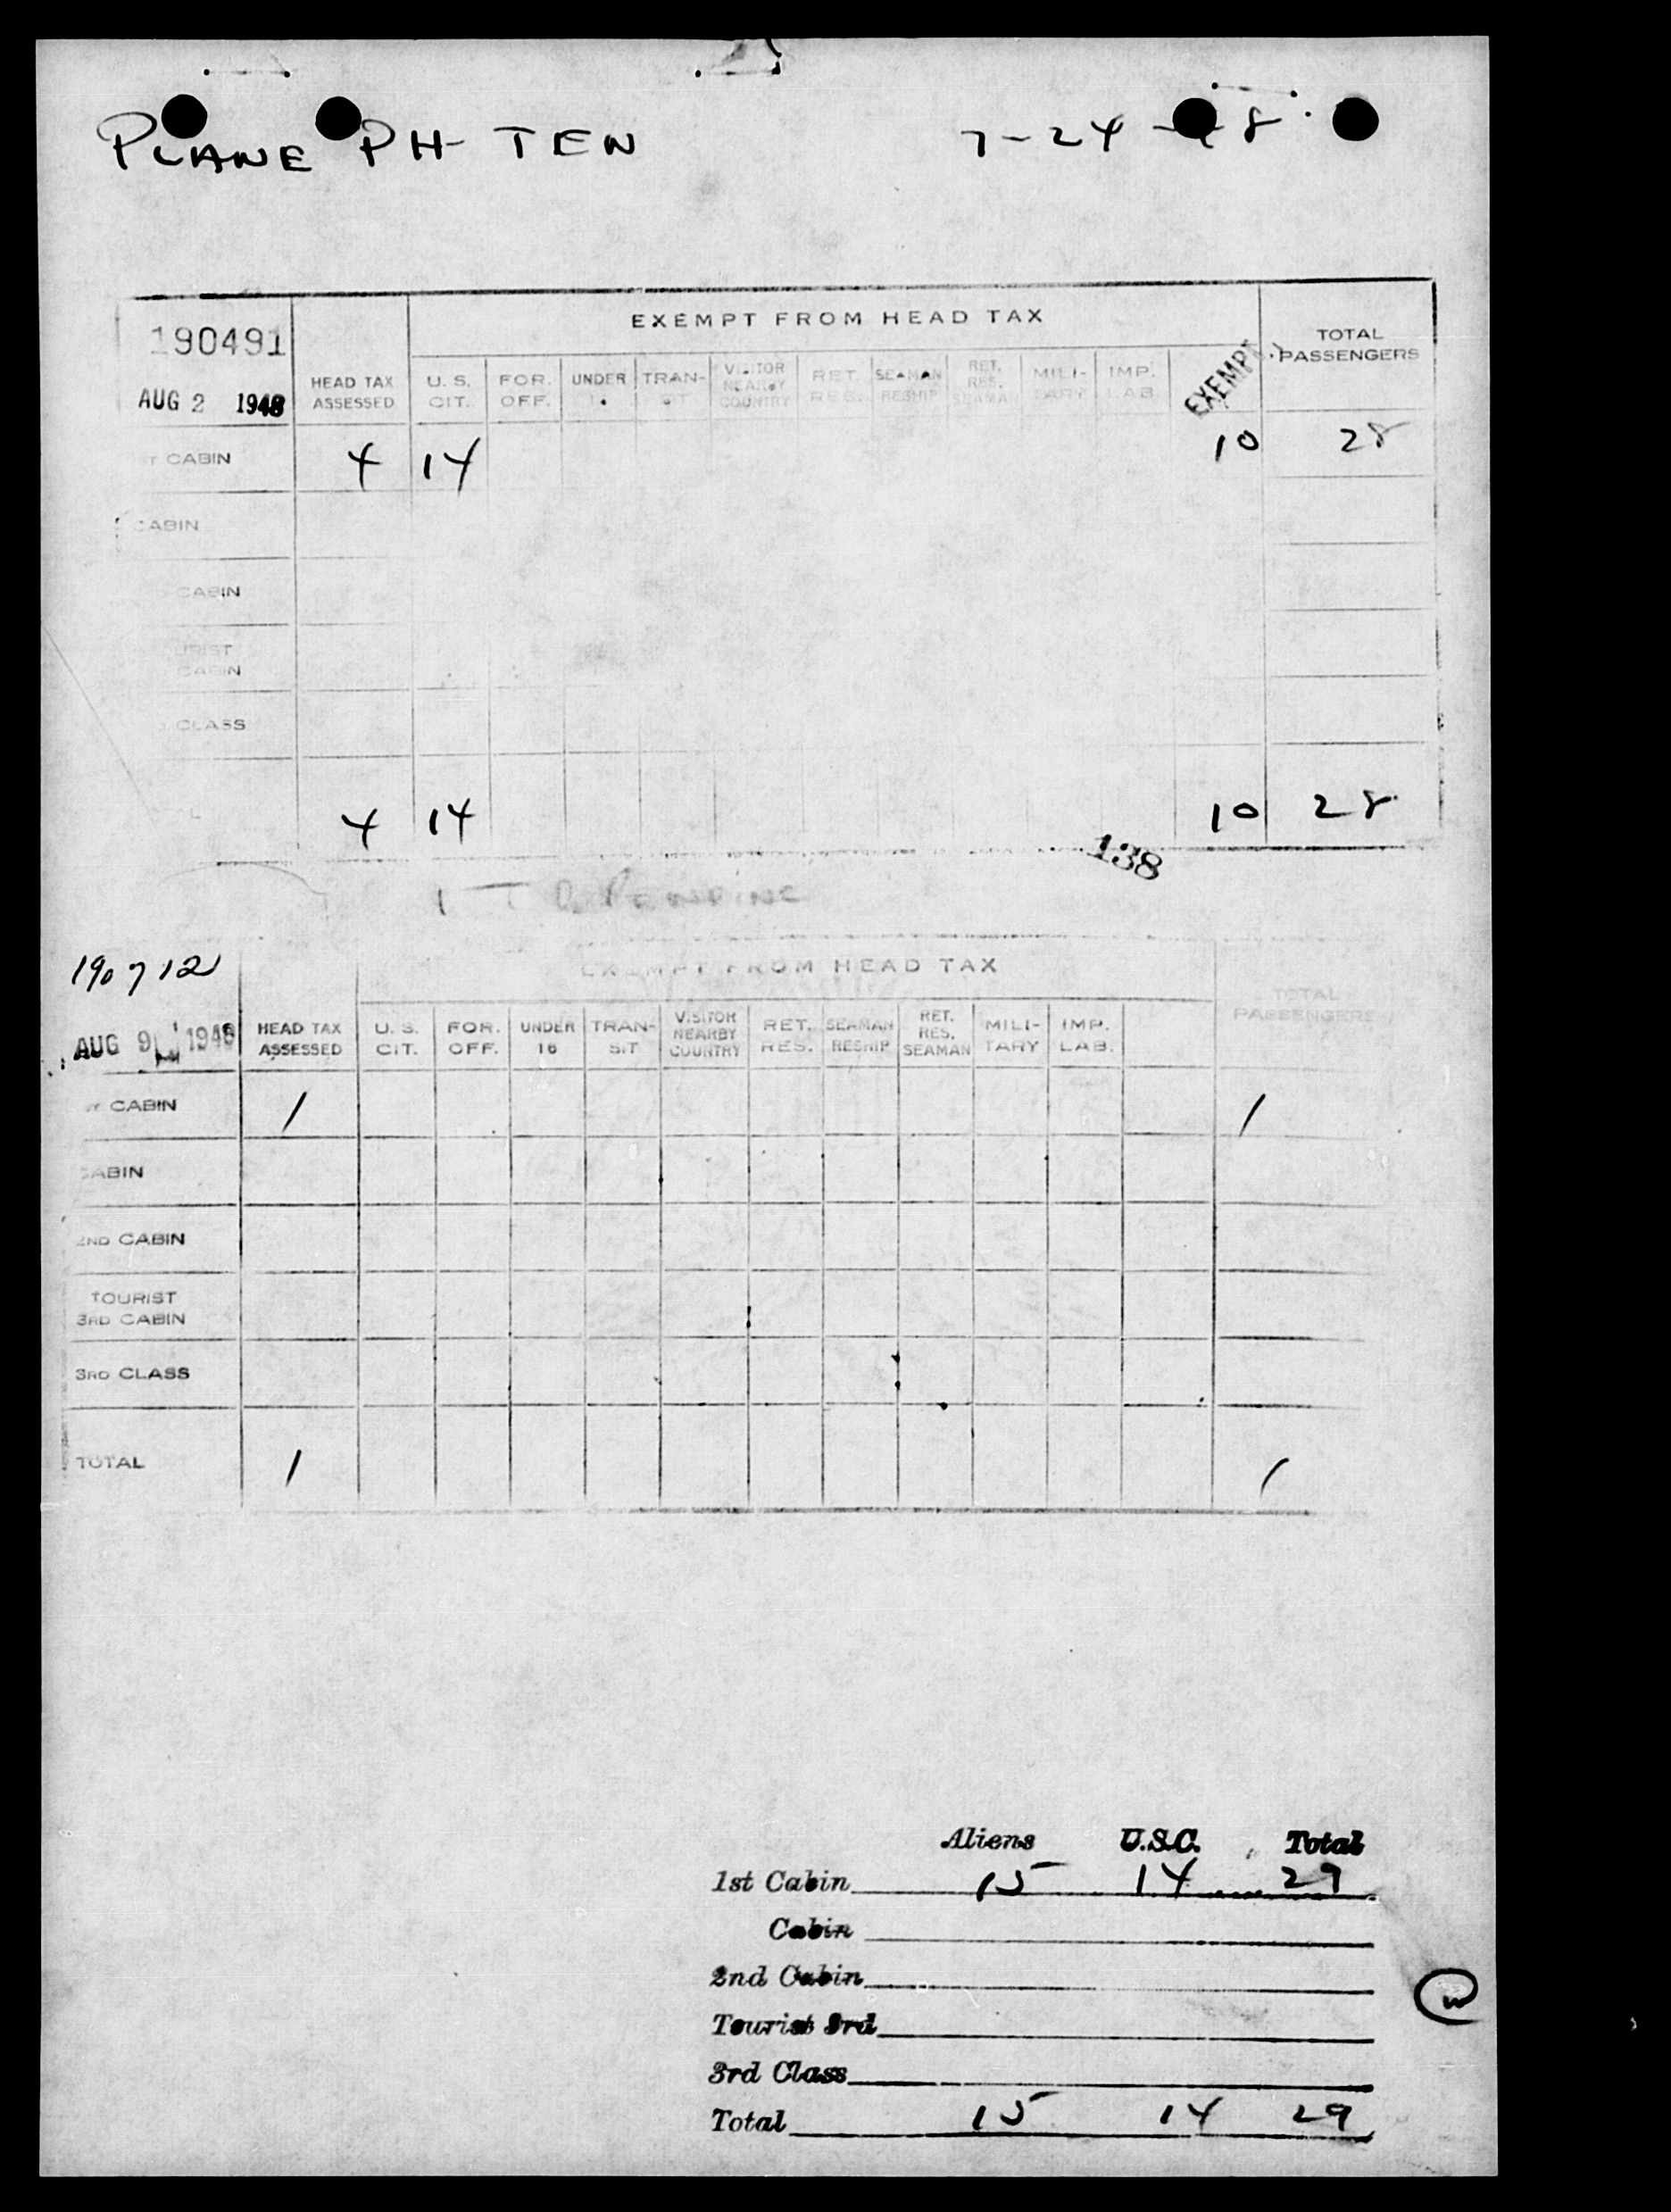 PLANE PH-TEN 7-24-48
EXEMPT FROM HEAD TAX
190491
AUG 2 1948
HEAD TAX ASSESSED
U. S. CIT.
FOR. OFF.
UNDER
TRAN-
VISITOR NEARBY COUNTRY
RET. RES.
SEAMAN RESHIP
RET. RES. SEAMAN
MILI- TARY
IMP. LAB.
EXEMPT
TOTAL PASSENGERS
CABIN 4 14 10 28
CABIN
CABIN
CABIN
CLASS
4 14 10 28
138
PENDING
190712
EXEMPT FROM HEAD TAX
AUG 9 1948
HEAD TAX ASSESSED
U. S. CIT.
FOR. OFF.
UNDER 16
TRAN- SIT
VISITOR NEARBY COUNTRY
RET. RES.
SEAMAN RESHIP
RET. RES. SEAMAN
MILI- TARY
IMP. LAB.
TOTAL PASSENGERS
CABIN 1 1
CABIN
2ND CABIN
TOURIST
3RD CABIN
3RD CLASS
TOTAL 1 1
Aliens U.S.C. Total
1st Cabin 15 14 29
Cabin
2nd Cabin
Tourist 3rd
3rd Class
Total 15 14 29
W